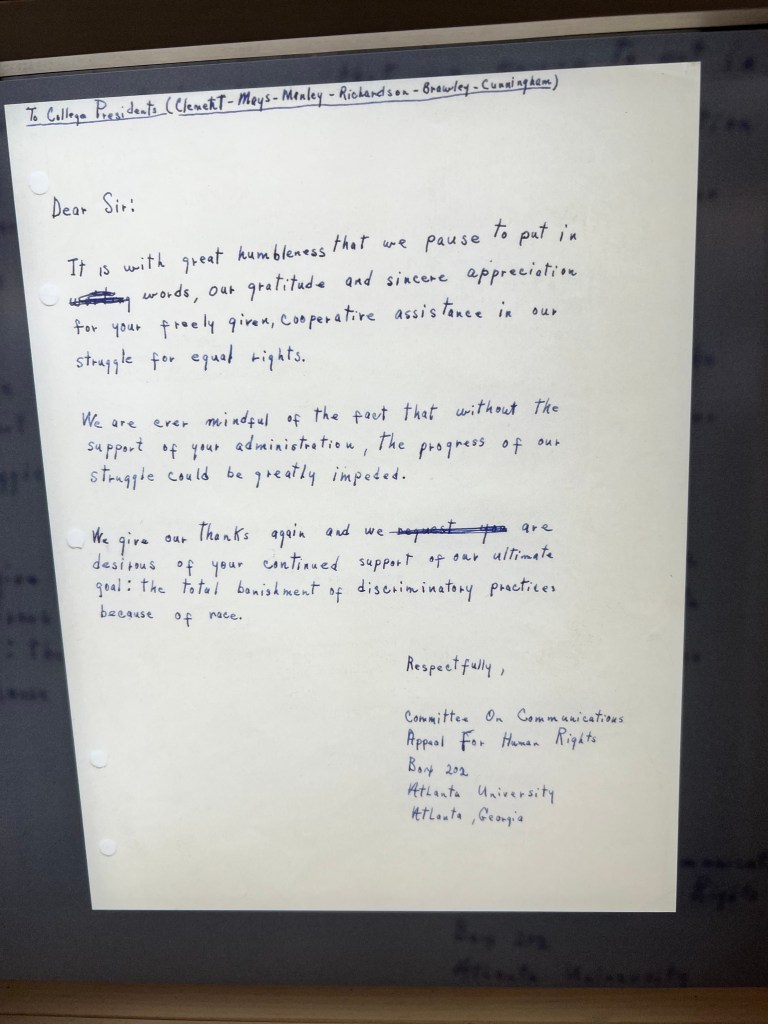 To College Presidents (Clement - Mays - Manley - Richardson - Brawley - Cunningham)
Dear Sir:
It is with great humbleness that we pause to put in
words, our gratitude and sincere appreciation
for your freely given, cooperative assistance in our
struggle for equal rights.
We are ever mindful of the fact that without the
support of your administration, the progress of our
struggle could be greatly impeded.
We give our thanks again and we request you are
desirous of your continued support of our ultimate
goal: the total banishment of discriminatory practices
because of race.
Respectfully,
Committee On Communications
Appeal For Human Rights
Box 202
Atlanta University
Atlanta, Georgia